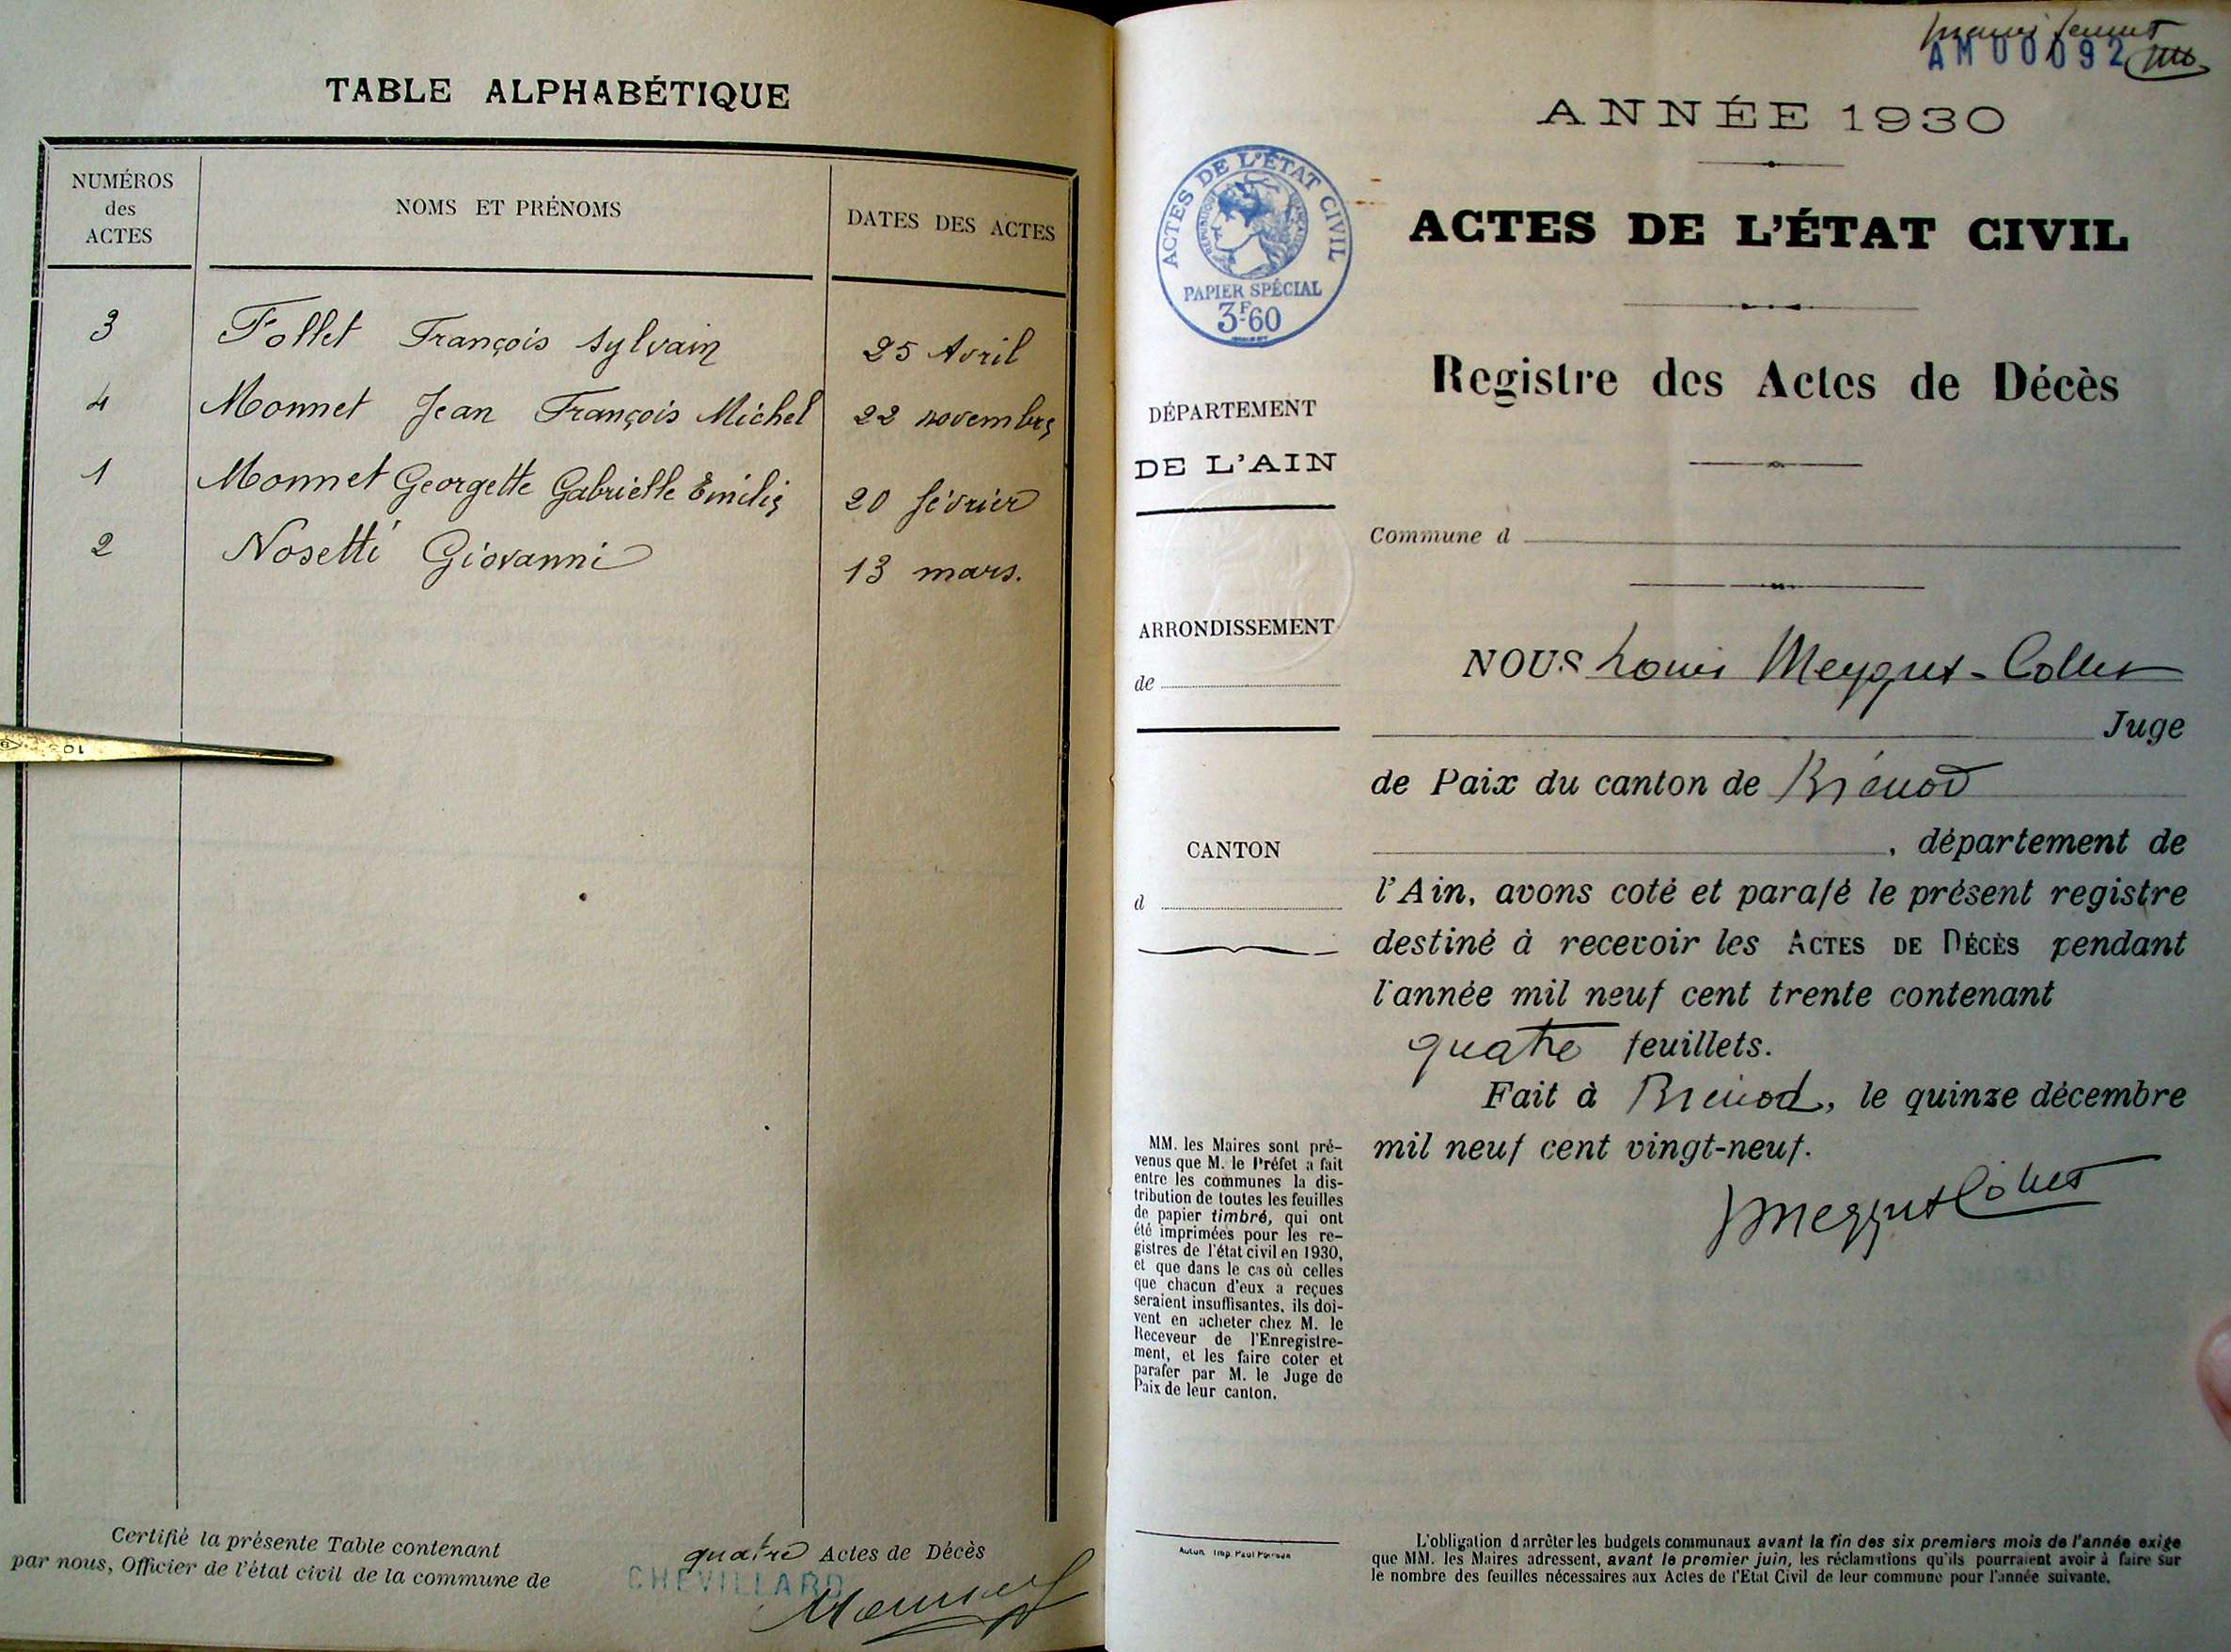 TABLE ALPHABÉTIQUE
NUMÉROS
des
ACTES
NOMS ET PRÉNOMS
DATES DES ACTES
3 Follet François Sylvain 25 Avril
4 Monnet Jean François Michel 22 novembre
1 Monnet Georgette Gabrielle Emilie 20 février
2 Nosetti Giovanni 13 mars.
Certifié la présente Table contenant quatre Actes de Décès
par nous, Officier de l'état civil de la commune de CHEVILLARD
AM00092
ANNÉE 1930
ACTES DE L'ÉTAT CIVIL
RÉPUBLIQUE FRANÇAISE
PAPIER SPÉCIAL
3F60
ACTES DE L'ÉTAT CIVIL
Registre des Actes de Décès
DÉPARTEMENT
DE L'AIN
Commune d
ARRONDISSEMENT
de
CANTON
d
NOUS Louis Meygret-Collet
Juge
de Paix du canton de Brénod
, département de
l'Ain, avons coté et parafé le présent registre
destiné à recevoir les ACTES DE DÉCÈS pendant
l'année mil neuf cent trente contenant
quatre feuillets.
Fait à Brénod, le quinze décembre
mil neuf cent vingt-neuf.
MM. les Maires sont pré-
venus que M. le Préfet a fait
entre les communes la dis-
tribution de toutes les feuilles
de papier timbré, qui ont
été imprimées pour les re-
gistres de l'état civil en 1930,
et que dans le cas où celles
que chacun d'eux a reçues
seraient insuffisantes, ils doi-
vent en acheter chez M. le
Receveur de l'Enregistre-
ment, et les faire coter et
parafer par M. le Juge de
Paix de leur canton.
L'obligation d'arrêter les budgets communaux avant la fin des six premiers mois de l'année exige
que MM. les Maires adressent, avant le premier juin, les réclamations qu'ils pourraient avoir à faire sur
le nombre des feuilles nécessaires aux Actes de l'Etat Civil de leur commune pour l'année suivante.